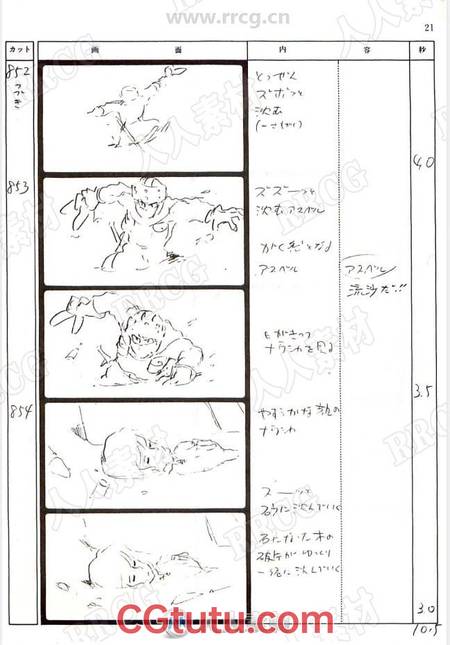 www.rrcg.cn
21
カット
画 面
内 容
秒
852
つづき
とつぜん
ズボッと
沈む
4.0
853
ズズーッと
沈むアスベル
がく然となる
アスベル
アスベル
流沙だ!!
ナウシカを見る
3.5
854
やすらかな顔の
ナウシカ
ズーッと
砂に沈んでいく
石になった木の
破片がゆっくり
一緒に沈んでいく
3.0
10.5
RRCG
人人素材
CGtutu.com